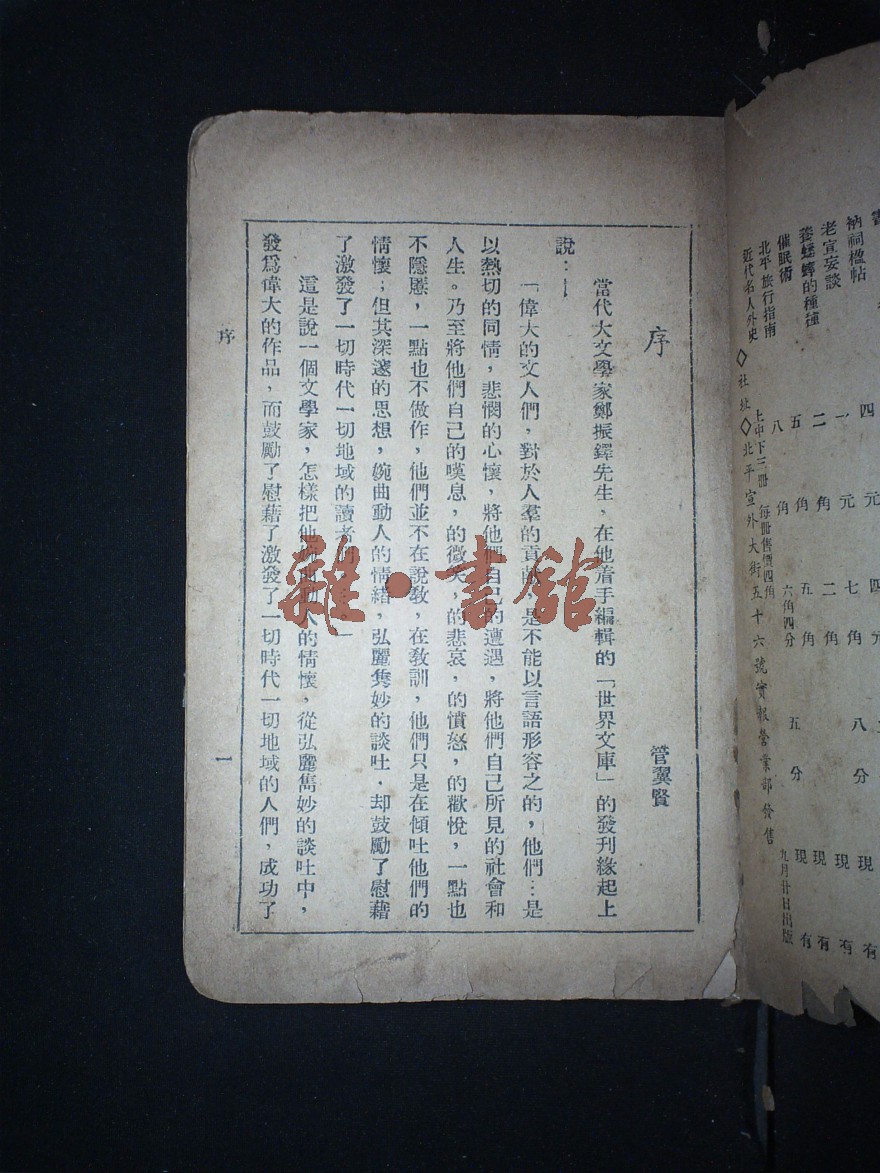 衲祠楹帖 四元 四元 現有
老宣妄談 一元 七角八分 現有
養蟋蟀的種種 二角 二角 現有
催眠術 五角 五角五分 現有
北平旅行指南 八角 六角四分 九月廿日出版
近代名人外史 上中下三冊 每冊售價四角
◇社址◇北平宣外大街五十六號實報營業部發售
序
管翼賢
當代大文學家鄭振鐸先生，在他着手編輯的「世界文庫」的發刊緣起上
說：—
「偉大的文人們，對於人羣的貢獻，是不能以言語形容之的，他們…是
以熱切的同情，悲憫的心懷，將他們自己的遭遇，將他們自己所見的社會和
人生。乃至將他們自己的嘆息，的微笑，的悲哀，的憤怒，的歡悅，一點也
不隱匿，一點也不做作，他們並不在說教，在教訓，他們只是在傾吐他們的
情懷；但其深邃的思想，婉曲動人的情緒，弘麗雋妙的談吐，却鼓勵了慰藉
了激發了一切時代一切地域的讀者們。」
這是說一個文學家，怎樣把他婉曲動人的情懷，從弘麗雋妙的談吐中，
發爲偉大的作品，而鼓勵了慰藉了激發了一切時代一切地域的人們，成功了
序
一
雜·書館